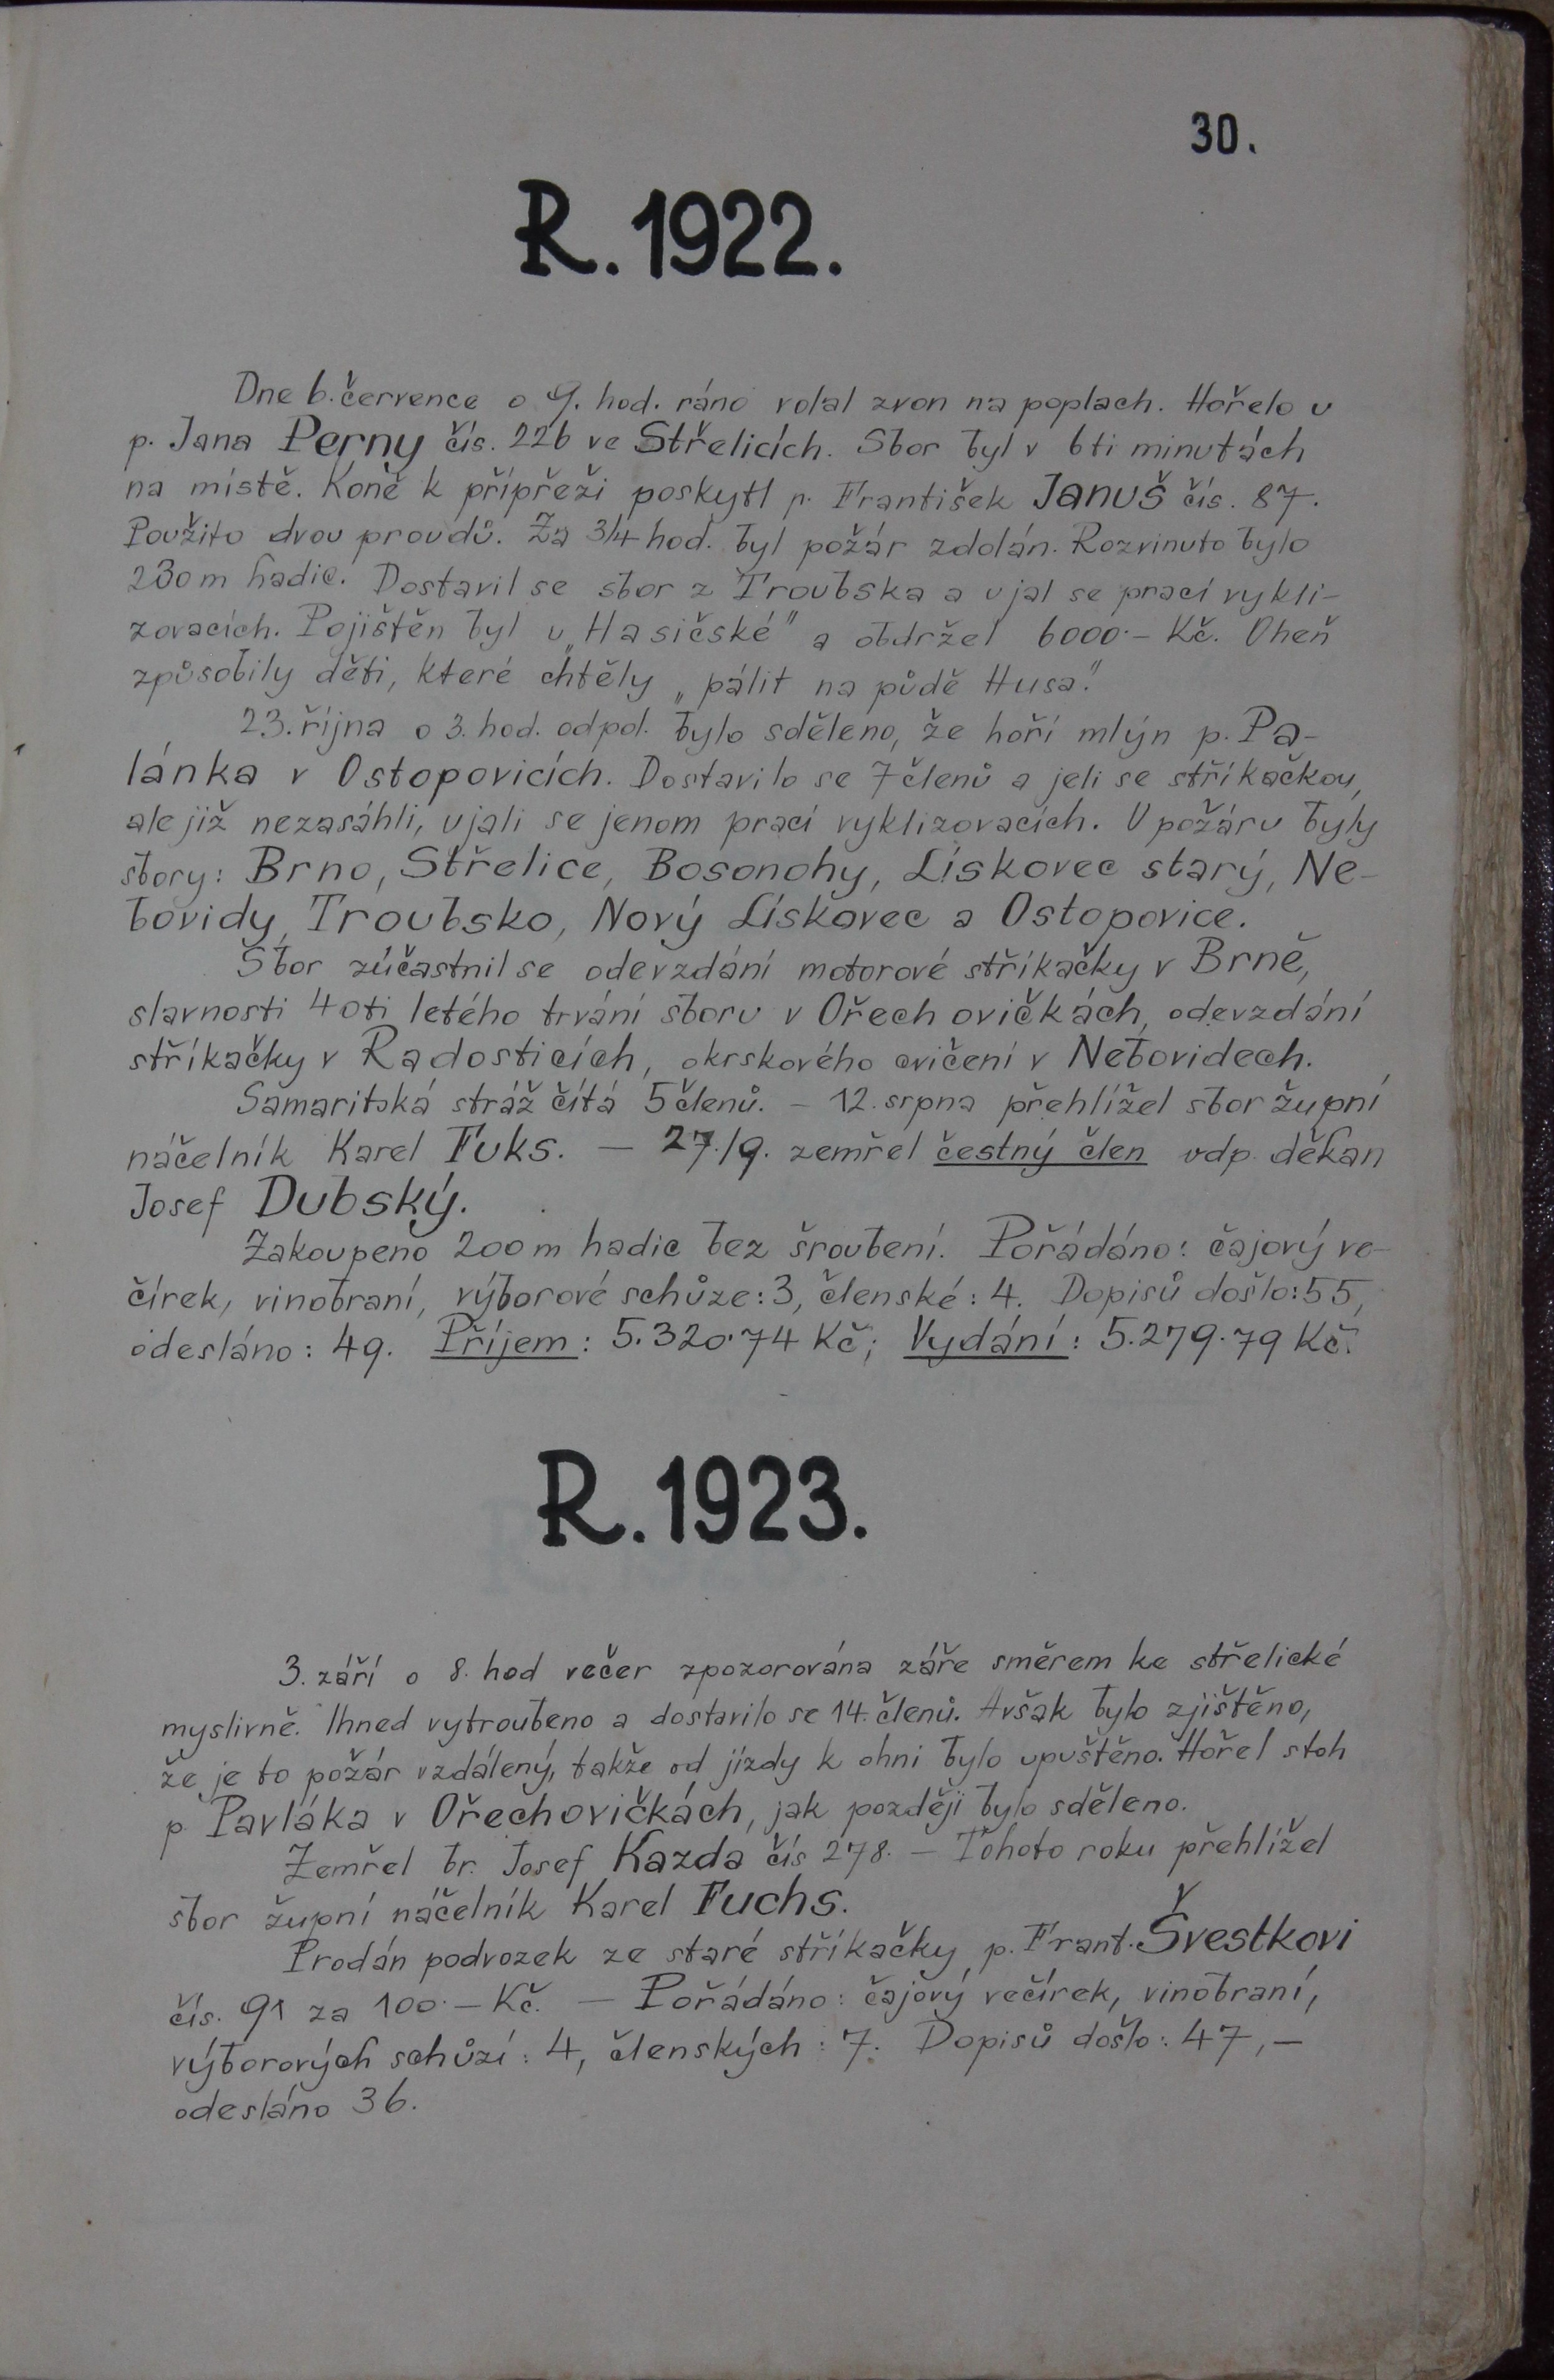 30.
R. 1922.
Dne 6. července o 9. hod. ráno volal zvon na poplach. Hořelo u
p. Jana Perny čís. 226 ve Střelicích. Sbor byl v 6ti minutách
na místě. Koně k přípřeži poskytl p. František Januš čís. 87.
Použito dvou proudů. Za 3/4 hod. byl požár zdolán. Rozvinuto bylo
230 m hadic. Dostavil se sbor z Troubska a ujal se prací vykli-
zovacích. Pojištěn byl u „Hasičské" a obdržel 6000·- Kč. Oheň
způsobily děti, které chtěly „pálit na půdě Husa."
23. října o 3. hod. odpol. bylo sděleno, že hoří mlýn p. Pa-
lánka v Ostopovicích. Dostavilo se 7 členů a jeli se stříkačkou,
ale již nezasáhli, ujali se jenom prací vyklizovacích. U požáru byly
sbory: Brno, Střelice, Bosonohy, Lískovec starý, Ne-
bovidy, Troubsko, Nový Lískovec a Ostopovice.
Sbor zúčastnil se odevzdání motorové stříkačky v Brně,
slavnosti 40ti letého trvání sboru v Ořechovičkách, odevzdání
stříkačky v Radosticích, okrskového cvičení v Nebovidech.
Samaritská stráž čítá 5 členů. - 12. srpna přehlížel sbor župní
náčelník Karel Fuks. — 27./9. zemřel čestný člen vdp. děkan
Josef Dubský.
Zakoupeno 200 m hadic bez šroubení. Pořádáno: čajový ve-
čírek, vinobraní, výborové schůze: 3, členské: 4. Dopisů došlo: 55,
odesláno: 49. Příjem: 5.320·74 Kč; Vydání: 5.279·79 Kč.
R. 1923.
3. září o 8. hod večer zpozorována záře směrem ke střelické
myslivně. Ihned vytroubeno a dostavilo se 14. členů. Avšak bylo zjištěno,
že je to požár vzdálený, takže od jízdy k ohni bylo upuštěno. Hořel stoh
p Pavláka v Ořechovičkách, jak později bylo sděleno.
Zemřel br. Josef Kazda čís 278. — Tohoto roku přehlížel
sbor župní náčelník Karel Fuchs.
Prodán podvozek ze staré stříkačky p. Frant. Švestkovi
čís. 91 za 100·- Kč. — Pořádáno: čajový večírek, vinobraní,
výborových schůzí: 4, členských: 7. Dopisů došlo: 47,—
odesláno 36.